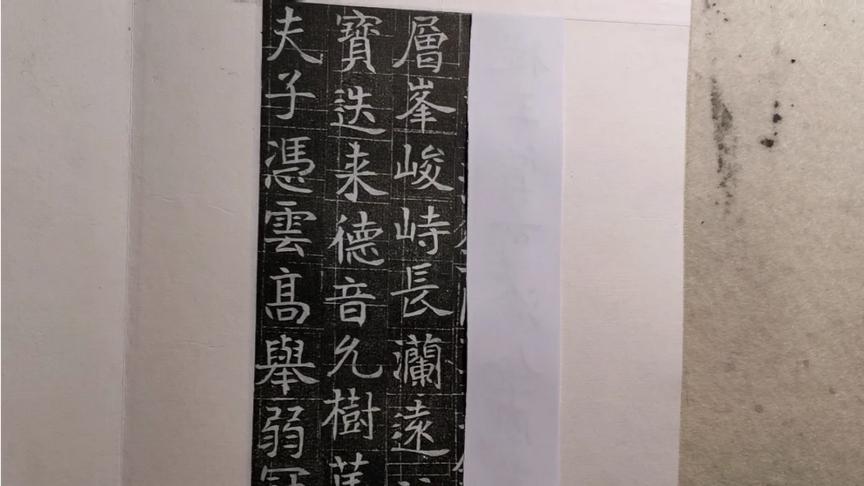 層峯峻峙長瀾遠
寶迭来德音允樹
夫子憑雲髙舉弱冠